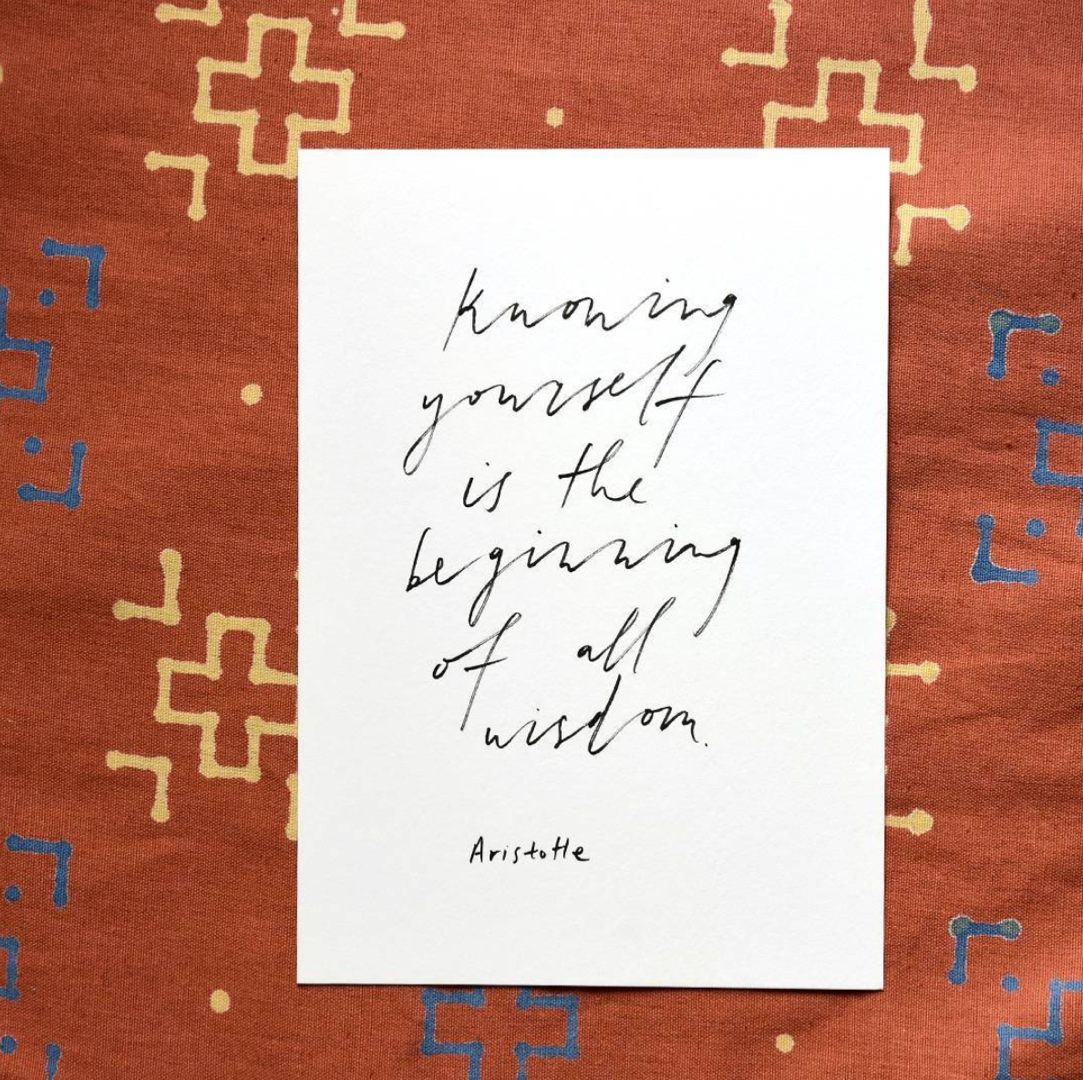 knowing
yourself
is the
beginning
of all
wisdom.
Aristotle